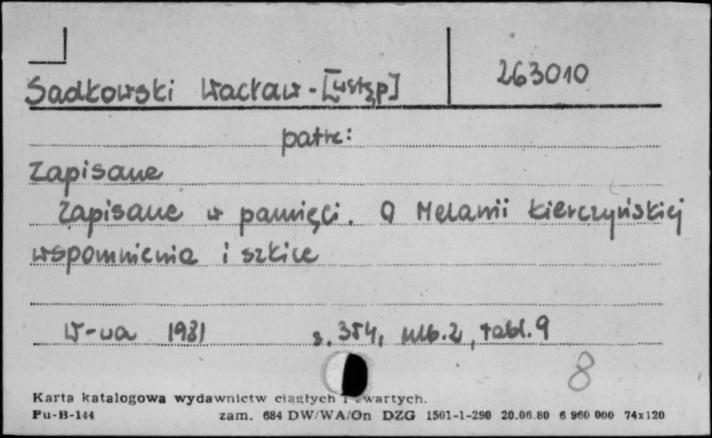 Sadkowski Wacław - [wstęp]
263010
patrz:
Zapisane
Zapisane w pamięci. O Melanii Kierczyńskiej
wspomnienia i szkice
W-wa 1981 s. 354, nlb. 2, tabl. 9
8
Karta katalogowa wydawnictw ciągłych i zwartych.
Pu-B-144 zam. 684 DW/WA/On DZG 1501-1-290 20.06.80 6 960 000 74x120